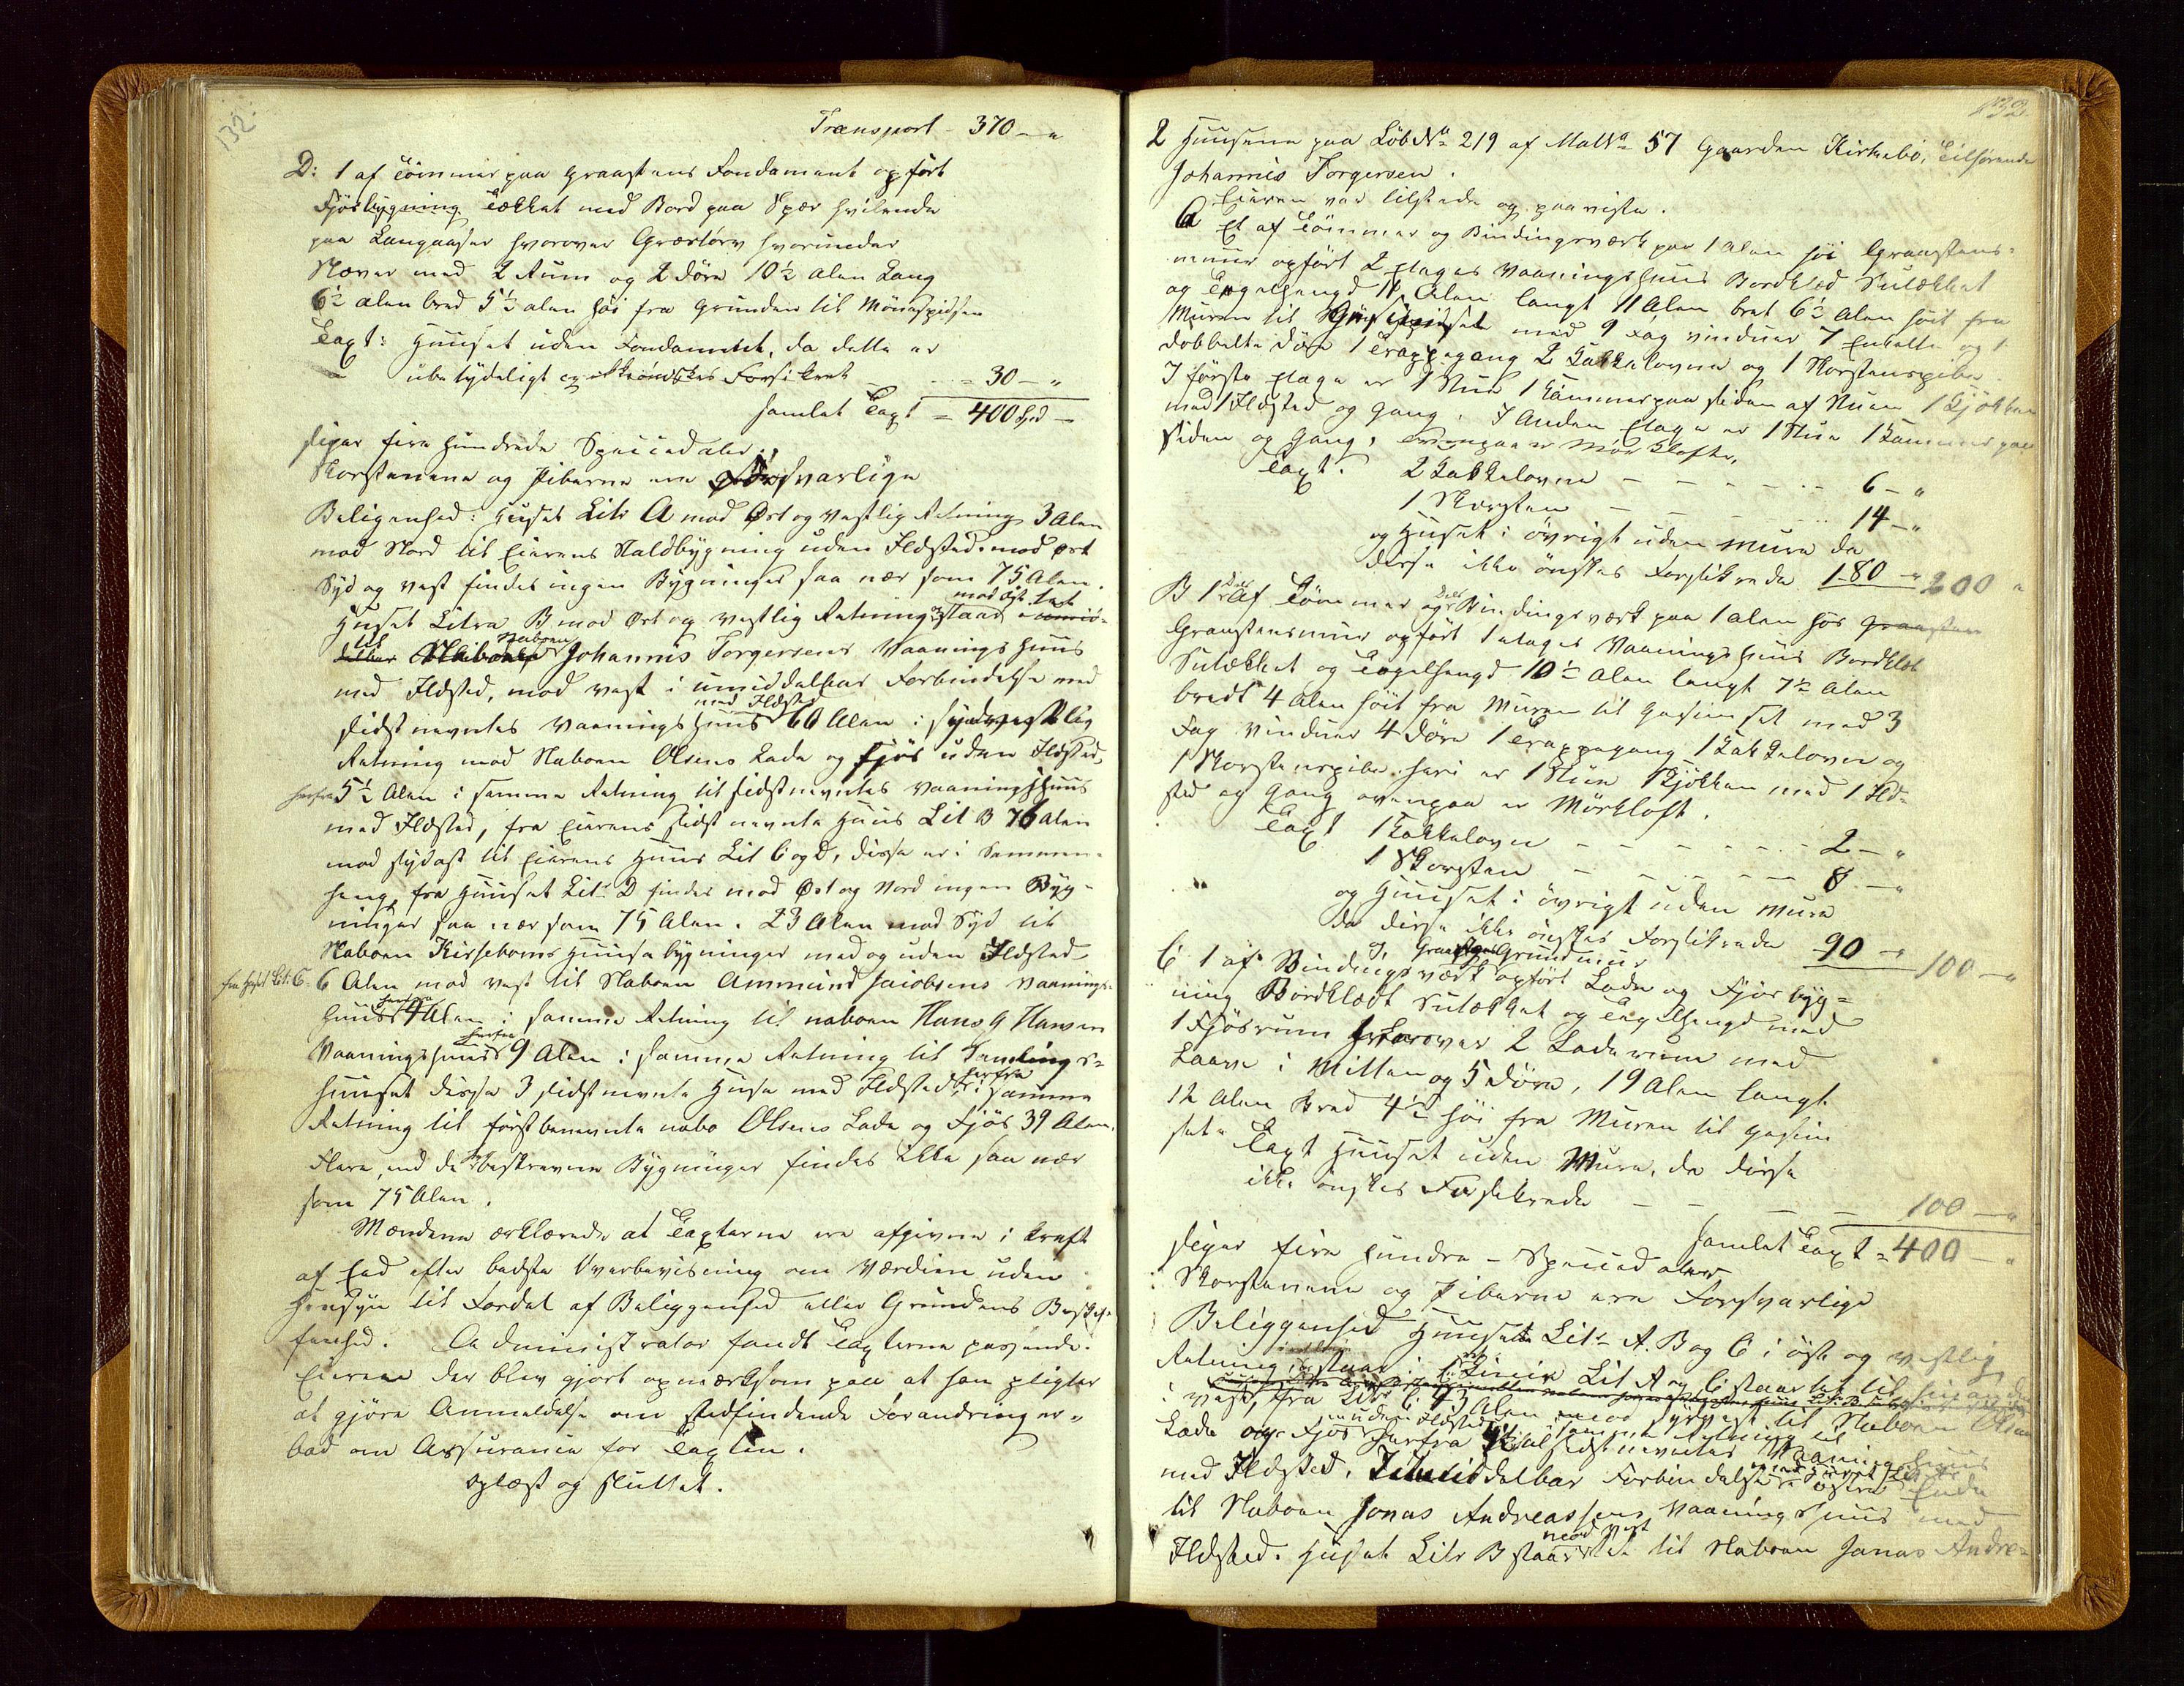 132.
Transport - 370 - "
D: 1 af Tömmer paa Graastens Fondament opfört
Fjösbygning Tækket med Bord paa Spær hvilende
paa Langaaser hvorover Græstörv hvorunder
Næver med 2 Rum og 2 Döre 10½ Alen Lang
6½ alen bred 5½ alen høi fra Grunden til Mönespidsen
Taxt: Huuset uden Fondament, da dette er
ubetydeligt og ikke ønskes Forsikret - 30 - "
Samlet Taxt = 400 Spd -
siger fire hundrede Speciedaler.
Skorstenene og Piberne ere forsvarlige
Beligenhed: Huset Litr A mod Øst og vestlig Retning 3 Alen
mod Nord til Eierens Staldbygning uden Ildsted. mod øst
Syd og vest findes ingen Bygninger saa nær som 75 Alen.
Huset Litra B mod Øst og vestlig Retning staar mod Øst tæt
til Naboen Johannis Torgersens Vaaningshuus
med Ildsted, mod vest i umiddelbar Forbindelse med
sidstnevntes Vaaningshuus med Ildsted 60 Alen i sydvestlig
Retning mod Naboen Olsens Lade og Fjös uden Ildsted,
herfra 5½ Alen i samme Retning til sidstnevntes Vaaningshuus
med Ildsted, fra Eierens sidstnevnte Huus Lit B 76 Alen
mod sydost til Eierens Huus Lit C og D, disse er i Sammen-
heng, fra Huuset Litr D findes mod Øst og Nord ingen Byg-
ninger saa nær som 75 Alen. 23 Alen mod Syd til
Naboen Kirseboms Huusebygninger med og uden Ildsted
fra Huset Lit. C. 6 Alen mod vest til Naboen Ammund Jacobsens Vaanings-
huus herfra 4 Alen i samme Retning til naboen Hans G Hansen
Vaaningshuus herfra 9 Alen i samme Retning til Samlings-
huuset disse 3 sidstnevnte Huse med Ildsted herfra i samme
Retning til förstbenevnte nabo Olsens Lade og Fjös 39 Alen.
Flere end de beskrevne Bygninger findes ikke saa nær
som 75 Alen.
Mændene erklærede at Taxterne ere afgivne i Kraft
af Eed efter bedste Overbeviisning om Værdien uden
Hensyn til Fordel af Beliggenhed eller Grundens Beskaf-
fenhed. Administrator fandt Taxterne passende.
Eieren der blev gjort opmærksom paa at han pligter
at gjöre Anmeldelse om stedfindende Forandringer,
bad om Assurance for Taxten.
Oplæst og sluttet.
132
2 Huusene paa LöbNo 219 af MatNo 57 Gaarden Kirkebö, Tilhørende
Johannis Torgersen.
Eieren var tilstede og paaviste.
A Et af Tömmer og Bindingsværk paa 1 Alen höi Graastens-
muur opfört 2 Etages Vaaningshuus Bordklæd Sutækket
og Tegelhengd 11 Alen langt 11 Alen bret 6½ Alen höit fra
Muren til Gesimset med 9 Fag vinduer 7 Enkelte og 1
dobbelte Döre 1 Trappegang 2 Kakkelovne og 1 Skorstenspibe.
I förste Etage er 1 Stue 1 Kammer paa siden af Stuen 1 Kjökken
med 1 Ildsted og Gang. I Anden Etage er 1 Stue 1 Kammer paa
siden og Gang, ovenpaa er Mörkloft.
Taxt. 2 Kakkelovne - - - 6 - "
1 Skorsten - - - 14 - "
og Huset i övrigt uden Mure da
disse ikke önskes Forsikrede 180 - " 200 "
B 1 Dels Af Tömmer og Dels Bindingsværk paa 1 alen höi
Graastensmuur opfört 1 etages Vaaningshuus Bordklæd
Sutækket og Tegelhengd 10½ Alen langt 7½ Alen
bredt 4 Alen höit fra Muren til Gesimset med 3
Fag vinduer 4 Döre 1 Trappegang 1 Kakkelovn og
1 Skorstenspibe. heri er 1 Stue 1 Kjökken med 1 Ild-
sted og Gang ovenpaa er Mörkloft.
Taxt 1 Kakkelovn - - - 2 - "
1 Skorsten - - - 8 - "
og Huuset i övrigt uden Mure
da disse ikke önskes Forsikrede 90 - " 100 - "
C 1 af Bindingsværk Graastens Grundmuur opfört Lade og Fjösbyg-
ning Bordklædt Sutækket og Tegelhengd med
1 Fjösrum hvorover 2 Laderum med
Laave i Mitten og 5 Döre, 19 Alen langt
12 Alen bred 4½ höi fra Muren til Gesim
set. Taxt Huuset uden Mure, da disse
ikke önskes Forsikrede - - - 100 - "
Samlet Taxt = 400 - "
siger fire hundre - Speciedaler
Skorstenene og Piberne ere Forsvarlige
Beliggenhed Huuset Litr A. B og C i øst og vestlig
Retning, staar i Linie Lit A og C staar tæt til hinanden
i vest, fra Litr C 4 Alen mod sydvest til Naboen Olsens
Lade og Fjös uden Ildsted herfra i samme Retning til sidstnevntes Vaaningshuus
med Ildsted. I umiddelbar Forbindelse östre Ende
til Naboen Jonas Andreassens Vaaningshuus med
Ildsted. Huset Litr B staar mod Vest tæt til Naboen Jonas Andre-